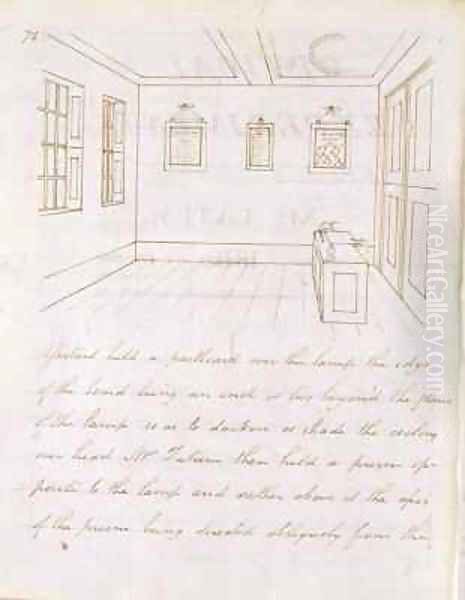 held a pasteboard over the lamp the edge
of the board being an inch or two beyond the flame
of the lamp so as to darken or shade the ceiling
over head Mr Tatum then held a prism op-
posite to the lamp and rather above it the apex
of the prism being directed obliquely from the
NiceArtGallery.com